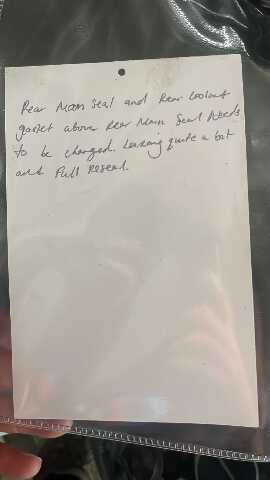 Rear Main Seal and Rear Coolant
gasket above Rear Main Seal Needs
to be changed. Leaking quite a bit
and Full Reseal.